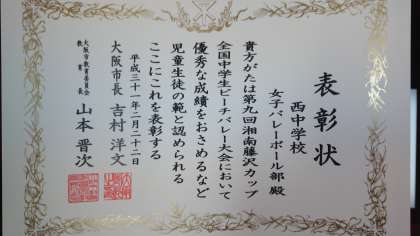 表彰状
西中学校
女子バレーボール部殿
貴方がたは第九回湘南藤沢カップ
全国中学生ビーチバレー大会において
優秀な成績をおさめるなど
児童生徒の範と認められる
ここにこれを表彰する
平成三十一年二月二十二日
大阪市長 吉村洋文
大阪市教育委員会
教育長 山本晋次